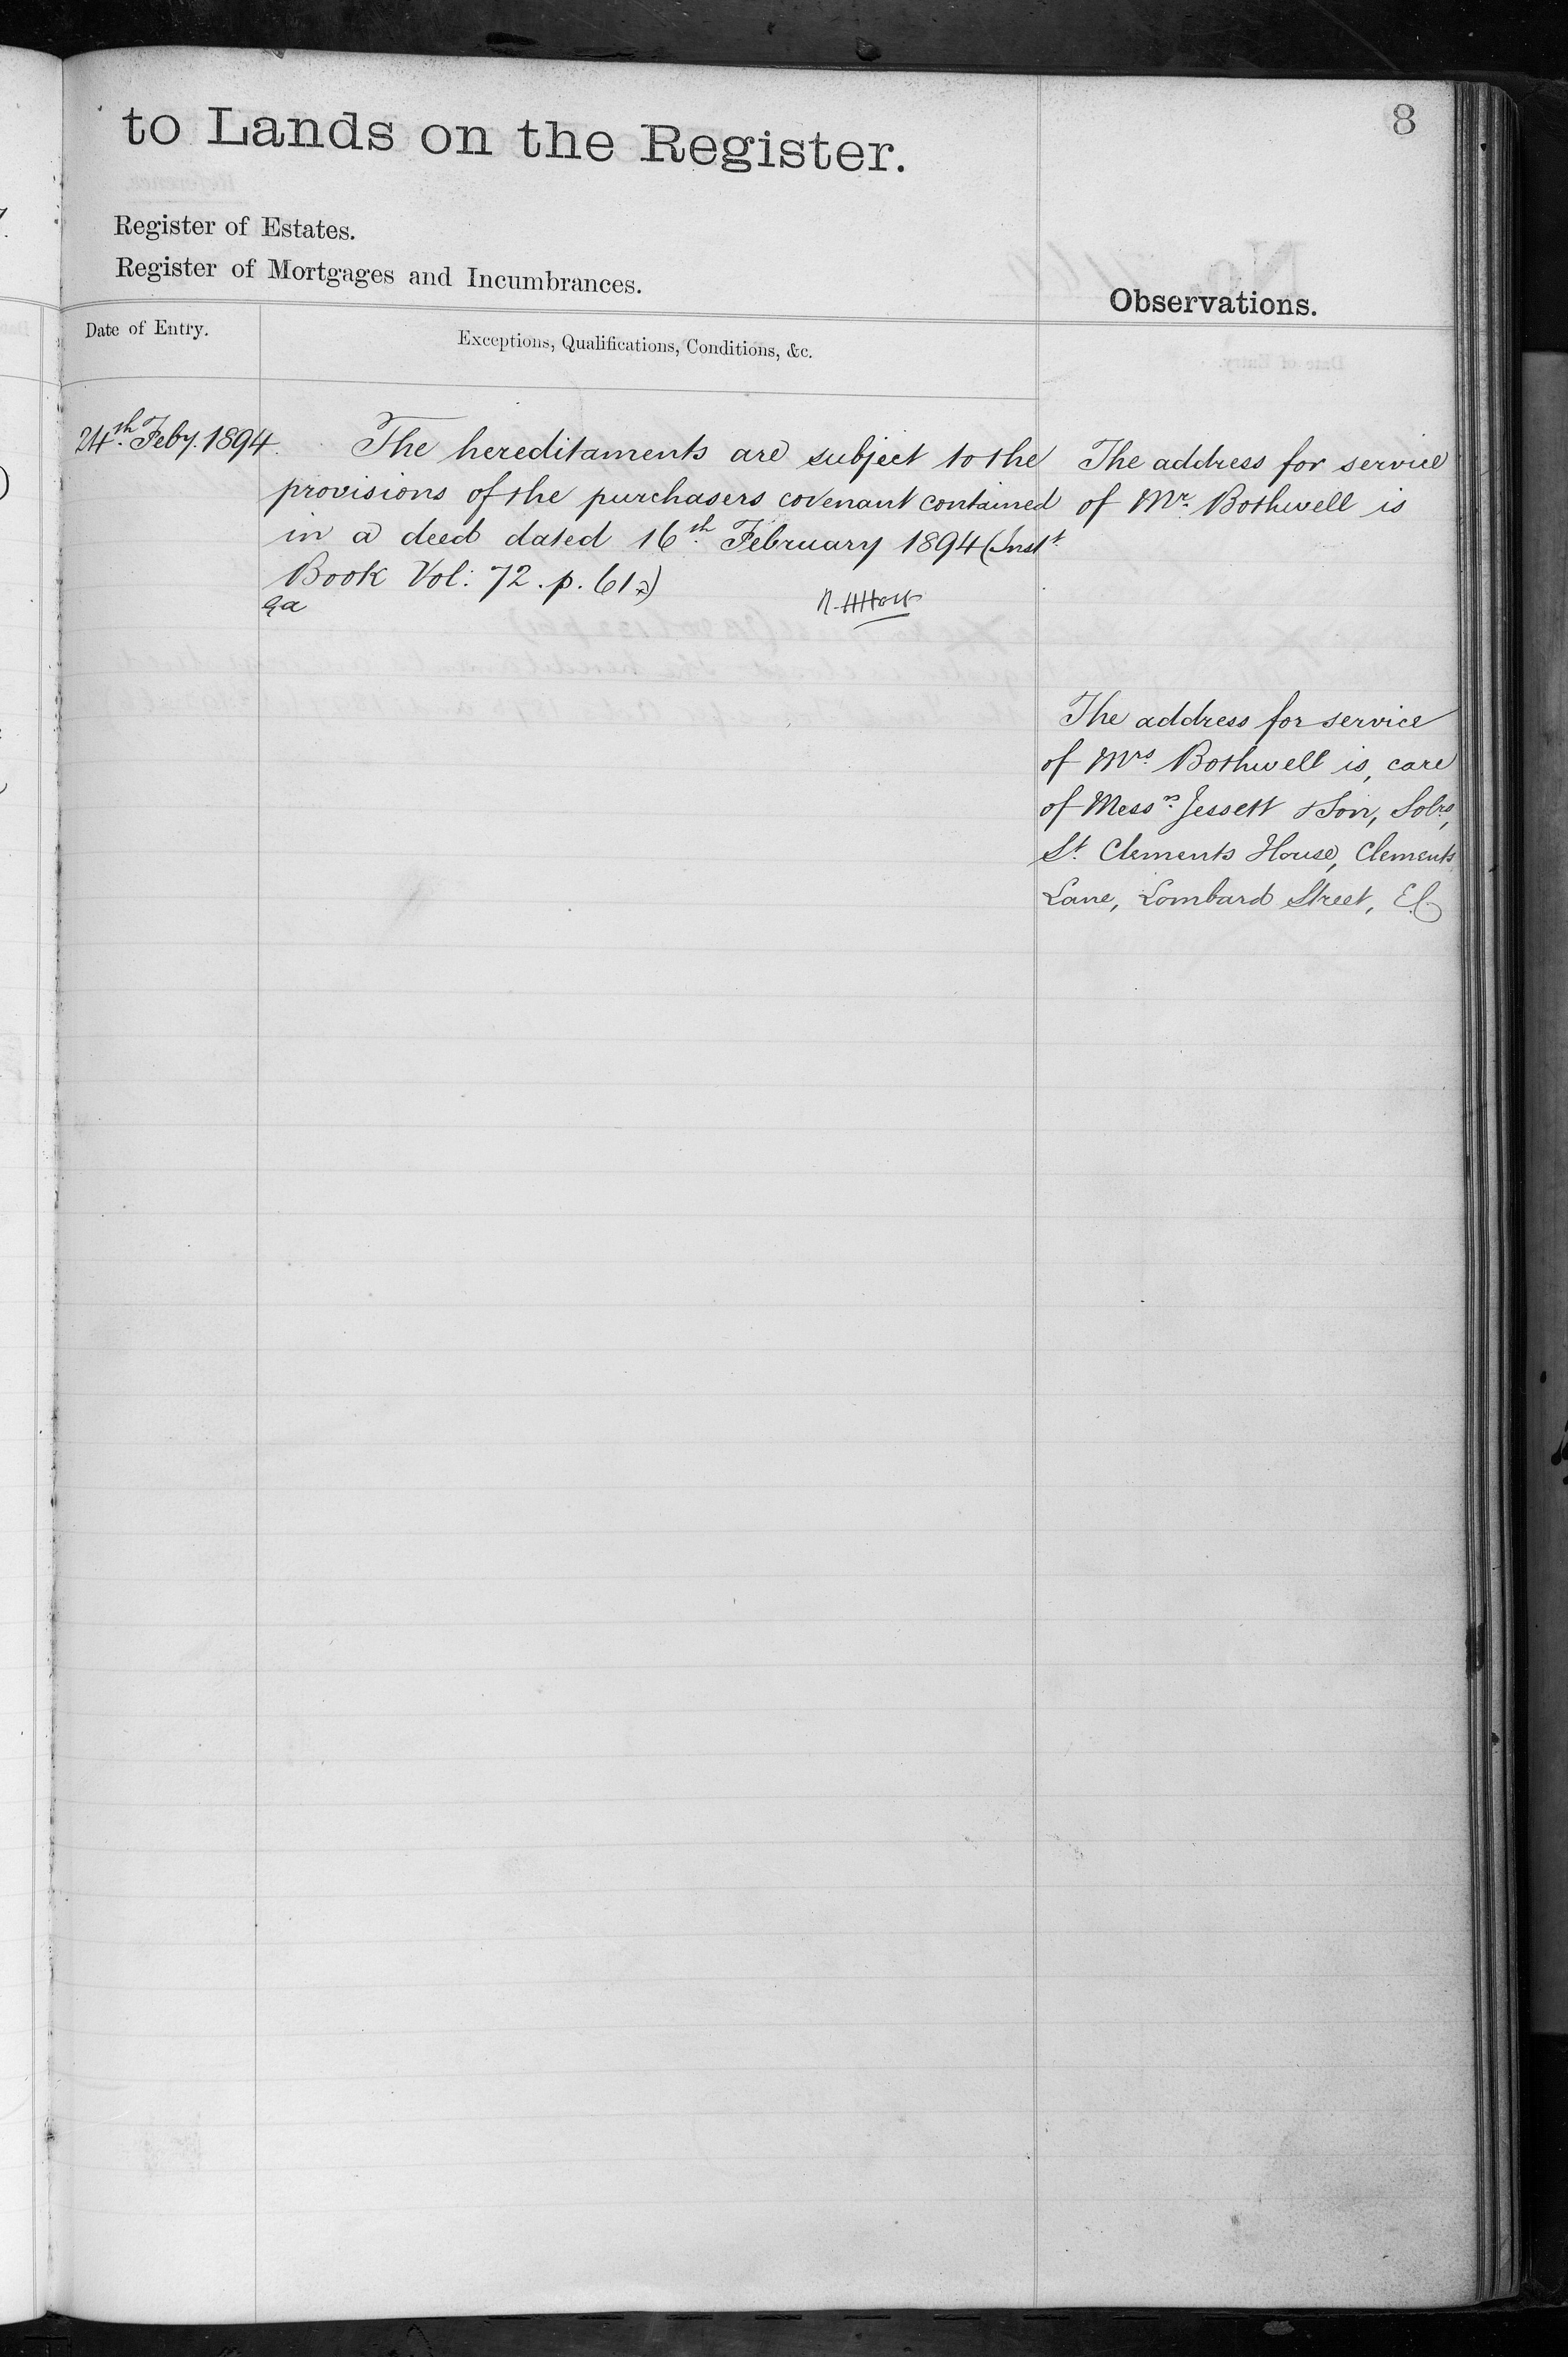 8
to Lands on the Register.
Register of Estates.
Register of Mortgages and Incumbrances.
Observations.
Date of Entry.
Exceptions, Qualifications, Conditions, &c.
24th Feby. 1894.
The hereditaments are subject to the
provisions of the purchasers covenant contained
in a deed dated 16th February 1894 (Instt
Book Vol: 72. p. 61a)
The address for service
of Mr. Bothwell is
The address for service
of Mrs. Bothwell is, care
of Messrs. Jessett & Son, Solrs,
St. Clements House, Clements
Lane, Lombard Street, E.C.